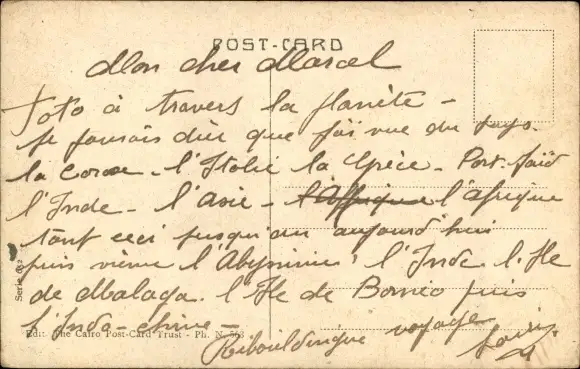 POST-CARD
Mon cher Marcel
Toto à travers la planète -
Je pourrais dire que j'ai vue du pays.
la Corse - l'Italie la Grèce - Port-Saïd
l'Inde - l'Asie - l'Affrique l'afrique
tout ceci jusqu'au aujourd'hui
puis viene l'Abyssinie l'Inde l'Ile
de Malaga. l'Ile de Borneo puis
l'Indo-chine -
Ribouldingue voyage
Edit. The Cairo Post-Card Trust - Ph. N. 563
Serie 612